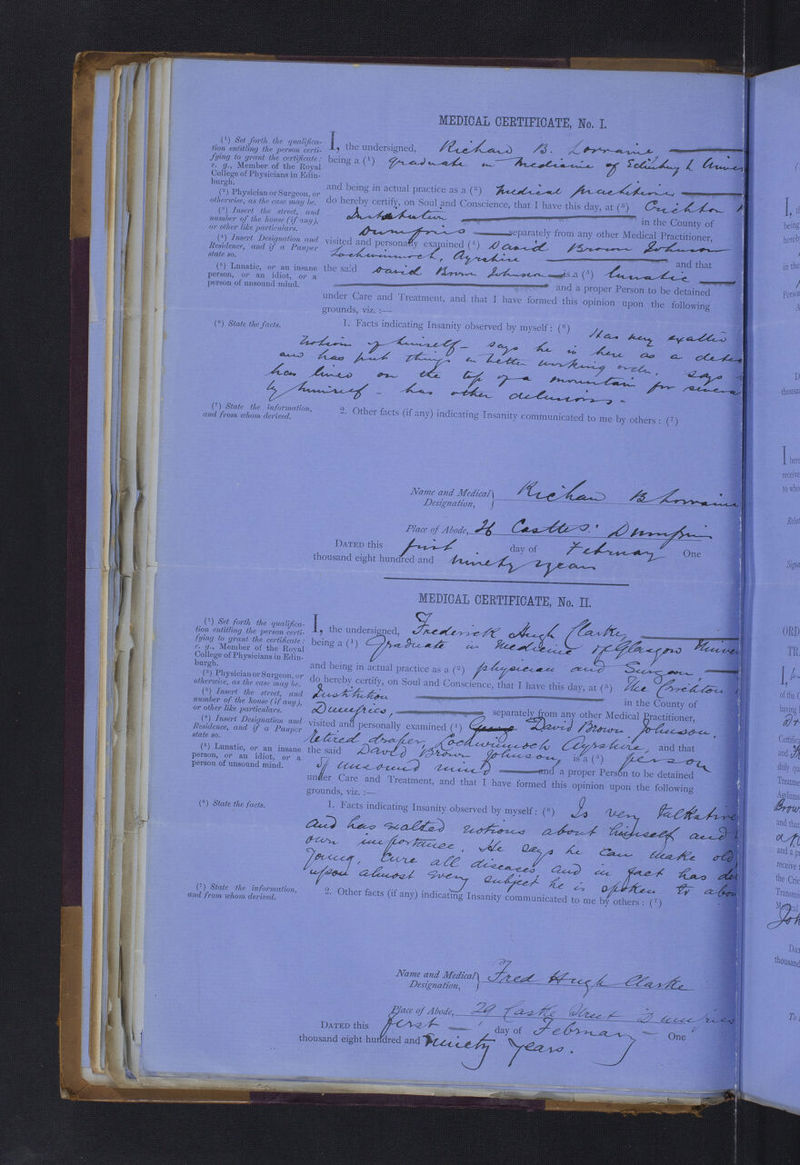 MEDICAL CERTIFICATE, No. I.
(¹) Set forth the qualifica-
tion entitling the person certi-
fying to grant the certificate:
e. g., Member of the Royal
College of Physicians in Edin-
burgh.
(²) Physician or Surgeon, or
otherwise, as the case may be.
(³) Insert the street, and
number of the house (if any),
or other like particulars.
(⁴) Insert Designation and
Residence, and if a Pauper
state so.
(⁵) Lunatic, or an insane
person, or an idiot, or a
person of unsound mind.
(⁶) State the facts.
(⁷) State the information,
and from whom derived.
I, the undersigned, Richard B. Lorraine
being a (¹) graduate in Medicine of Edinburgh
and being in actual practice as a (²) Medical practitioner
do hereby certify, on Soul and Conscience, that I have this day, at (³) Crichton
Institution in the County of
Dumfries separately from any other Medical Practitioner,
visited and personally examined (⁴) David Brown Johnson
Lochwinnoch, Ayrshire and that
the said David Brown Johnson is a (⁵) lunatic
and a proper Person to be detained
under Care and Treatment, and that I have formed this opinion upon the following
grounds, viz. :—
1. Facts indicating Insanity observed by myself : (⁶) Has very exalted
notions of himself - says he is here as a
and has put things in better working order. Says
has lived on the top of a mountain for
by himself - has other delusions -
2. Other facts (if any) indicating Insanity communicated to me by others : (⁷)
Name and Medical Designation, Richard B Lorraine
Place of Abode, 26 Castle St Dumfries
DATED this first day of February One
thousand eight hundred and ninety years
MEDICAL CERTIFICATE, No. II.
(¹) Set forth the qualifica-
tion entitling the person certi-
fying to grant the certificate:
e. g., Member of the Royal
College of Physicians in Edin-
burgh.
(²) Physician or Surgeon, or
otherwise, as the case may be.
(³) Insert the street, and
number of the house (if any),
or other like particulars.
(⁴) Insert Designation and
Residence, and if a Pauper
state so.
(⁵) Lunatic, or an insane
person, or an idiot, or a
person of unsound mind.
(⁶) State the facts.
(⁷) State the information,
and from whom derived.
I, the undersigned, Frederick Hugh Clarke,
being a (¹) Graduate in Medicine of Glasgow
and being in actual practice as a (²) physician and Surgeon,
do hereby certify, on Soul and Conscience, that I have this day, at (³) The Crichton
Institution in the County of
Dumfries, separately from any other Medical Practitioner,
visited and personally examined (⁴) David Brown Johnson.
Retired draper, Lochwinnoch Ayrshire, and that
the said David Brown Johnson, is a (⁵) person
of unsound mind and a proper Person to be detained
under Care and Treatment, and that I have formed this opinion upon the following
grounds, viz. :—
1. Facts indicating Insanity observed by myself : (⁶) Is very talkative
and has exalted notions about himself and
own importance. He says he can make old
young, cure all diseases and in fact has
upon almost every subject he is spoken to
2. Other facts (if any) indicating Insanity communicated to me by others : (⁷)
Name and Medical Designation, Fred Hugh Clarke
Place of Abode, 29 Castle Street Dumfries
DATED this first day of February One
thousand eight hundred and Ninety years.